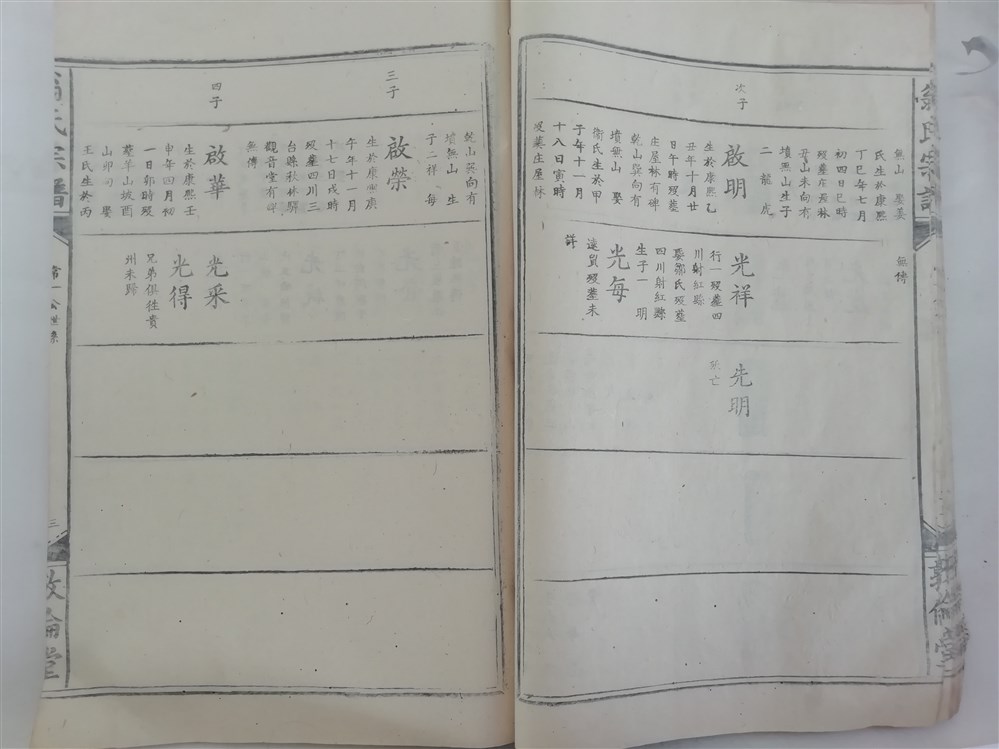 無山 娶姜
氏生於康熙
丁巳年七月
初四日巳時
歿葬庄屋林
丑山未向有
墳無山生子
二 龍 虎
無傳
次子
啟明
生於康熙乙
丑年十月廿
日午時歿葬
庄屋林有碑
乾山巽向有
墳無山 娶
衛氏生於甲
子年十一月
十八日寅時
歿葬庄屋林
光祥
行一歿葬四
川射紅縣
娶鄒氏歿葬
四川射紅縣
生子一 明
光每
遠貿歿葬未
詳
先明
殀亡
乾山巽向有
墳無山 生
子二祥 每
三子
啟榮
生於康熙庚
午年十一月
十七日戌時
歿葬四川三
台縣秋林驛
觀音堂有碑
無傳
四子
啟華
生於康熙壬
申年四月初
一日卯時歿
葬羊山坡酉
山卯向 娶
王氏生於丙
光采
光得
兄弟俱徃貴
州未歸
氏宗譜
常一公世系
三
敦倫堂
敦倫堂